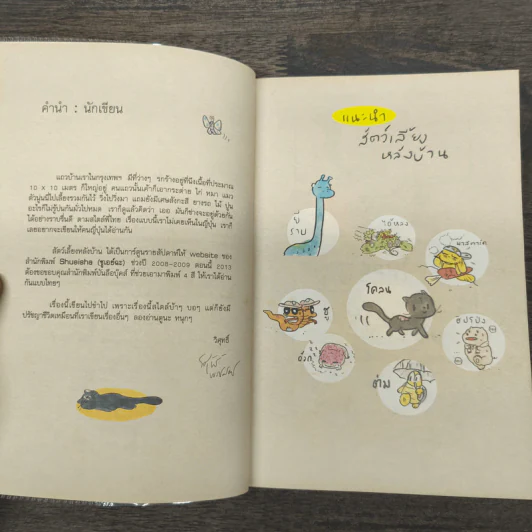 คำนำ : นักเขียน
แถวบ้านเราในกรุงเทพฯ มีที่ว่างๆ รกร้างอยู่ที่นึงเนื้อที่ประมาณ
10 x 10 เมตร ก็ใหญ่อยู่ คนแถวนั้นเค้าก็เอากระต่าย ไก่ หมา แมว
ตัวนู่นนี่ไปเลี้ยงรวมกันไว้ วิ่งไปวิ่งมา แถมยังมีเศษสังกะสี ยางรถ ไม้ ปูน
อะไรก็ไม่รู้ปนกันมั่วไปหมด เราก็ดูแล้วคิดว่า เออ มันก็ช่างจะอยู่ด้วยกัน
ได้อย่างราบรื่นดี ตามสไตล์พี่ไทย เรื่องแบบนี้เราไม่เคยเห็นในญี่ปุ่น เราก็
เลยอยากจะเขียนให้คนญี่ปุ่นได้อ่านกัน
สัตว์เลี้ยงหลังบ้าน ได้เป็นการ์ตูนรายสัปดาห์ให้ website ของ
สำนักพิมพ์ Shueisha (ชูเอย์ฉะ) ช่วงปี 2008-2009 ตอนนี้ 2013
ต้องขอขอบคุณสำนักพิมพ์บันลือบุ๊คส์ ที่ช่วยเอามาพิมพ์ 4 สี ให้เราได้อ่าน
กันแบบไทยๆ
เรื่องนี้เขียนไปขำไป เพราะเรื่องนี้สไตล์บ้าๆ บอๆ แต่ก็ยังมี
ปรัชญาชีวิตเหมือนที่เราเขียนเรื่องอื่นๆ ลองอ่านดูนะ ทนุกๆ
วิศุทธิ์
แนะนำ
สัตว์เลี้ยง
หลังบ้าน
ยี
ราบ
โคลน
ชู
อำพ